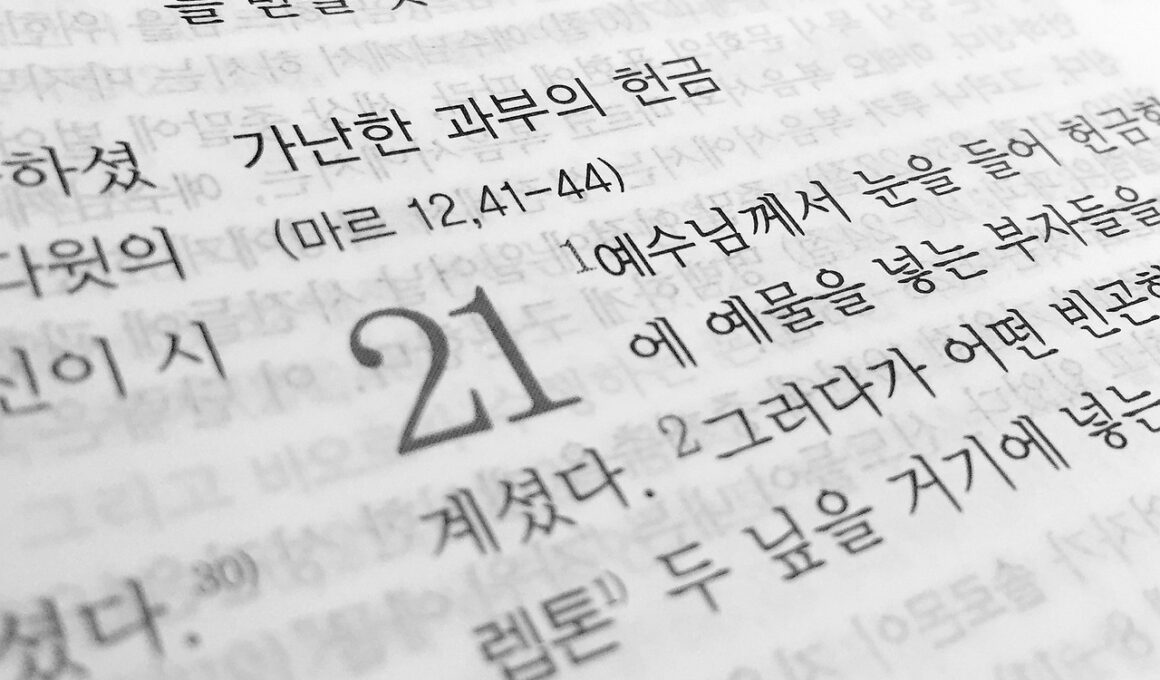 하셨
다윗의
신이 시
셨다.30)
가난한 과부의 헌금
(마르 12,41-44)
21 1예수님께서 눈을 들어 헌금
에 예물을 넣는 부자들을
계셨다. 2그러다가 어떤 빈곤
렙톤1) 두 닢을 거기에 넣는